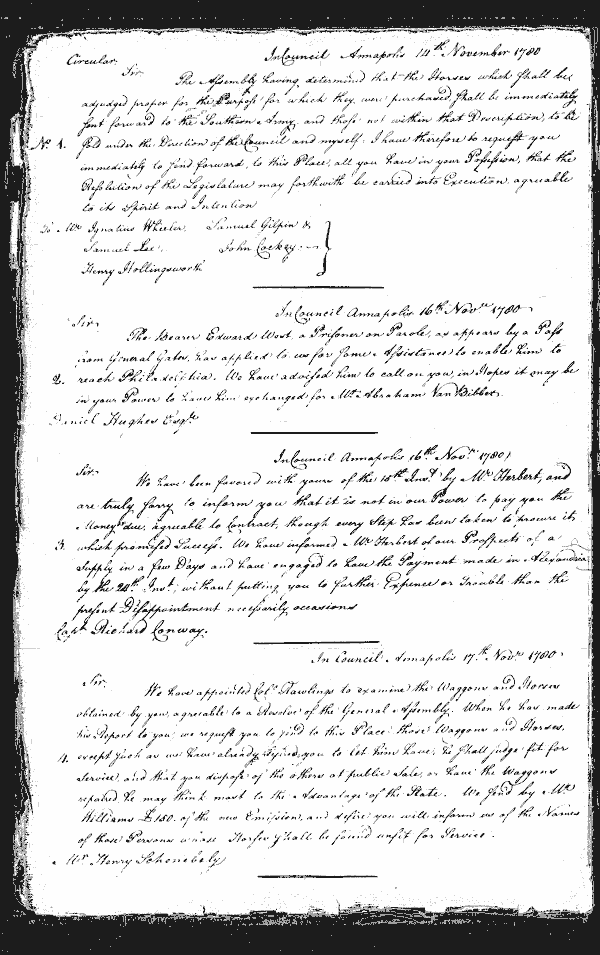 Circular. In Council Annapolis 14th November 1780
Sir
The Assembly having determined that the Horses which shall be
adjudged proper for the Purpose for which they were purchased shall be immediately
sent forward to the Southern Army, and those not within that Description, to be
No. 1. sold under the Direction of the Council and myself. I have therefore to request you
immediately to send forward, to this Place, all you have in your Possession, that the
Resolution of the Legislature may forthwith be carried into Execution agreeable
to its Spirit and Intention
To Mr. Ignatius Wheeler Samuel Gilpin &
Samuel Lee John Cockey
Henry Hollingsworth
In Council Annapolis 16th Novr. 1780
Sir
The Bearer Edward West, a Prisoner on Parole, as appears by a Pass
from General Gates, has applied to us for some Assistance to enable him to
2. reach Philadelphia. We have advised him to call on you, in Hopes it may be
in your Power to have him exchanged for Mr. Abraham Van Bibber
Daniel Hughes Esqr.
In Council Annapolis 16th Novr. 1780
Sir.
We have been favored with yours of the 15th Inst. by Mr. Herbert, and
are truly sorry to inform you that it is not in our Power to pay you the
Money due, agreeable to Contract, though every Step has been taken to procure it,
3. which promised Success. We have informed Mr. Herbert of our Prospects of a
Supply in a few Days and have engaged to have the Payment made in Alexandria
by the 24th Inst., without putting you to further Expence or Trouble than the
present Disappointment necessarily occasions
Capt. Richard Conway.
In Council Annapolis 17th Novr. 1780
Sir.
We have appointed Colo. Rawlings to examine the Waggons and Horses
obtained by you, agreeable to a Resolve of the General Assembly. When he has made
his Report to you, we request you to send to this Place those Waggons and Horses,
4. except such as we have already desired you to let him have, he shall judge fit for
Service, and that you dispose of the others at public Sale, or have the Waggons
repaired he may think most to the Advantage of the State. We send by Mr.
Williams £150 of the new Emission, and desire you will inform us of the Names
of those Persons whose Horses shall be found unfit for Service.
Mr. Henry Schenebely